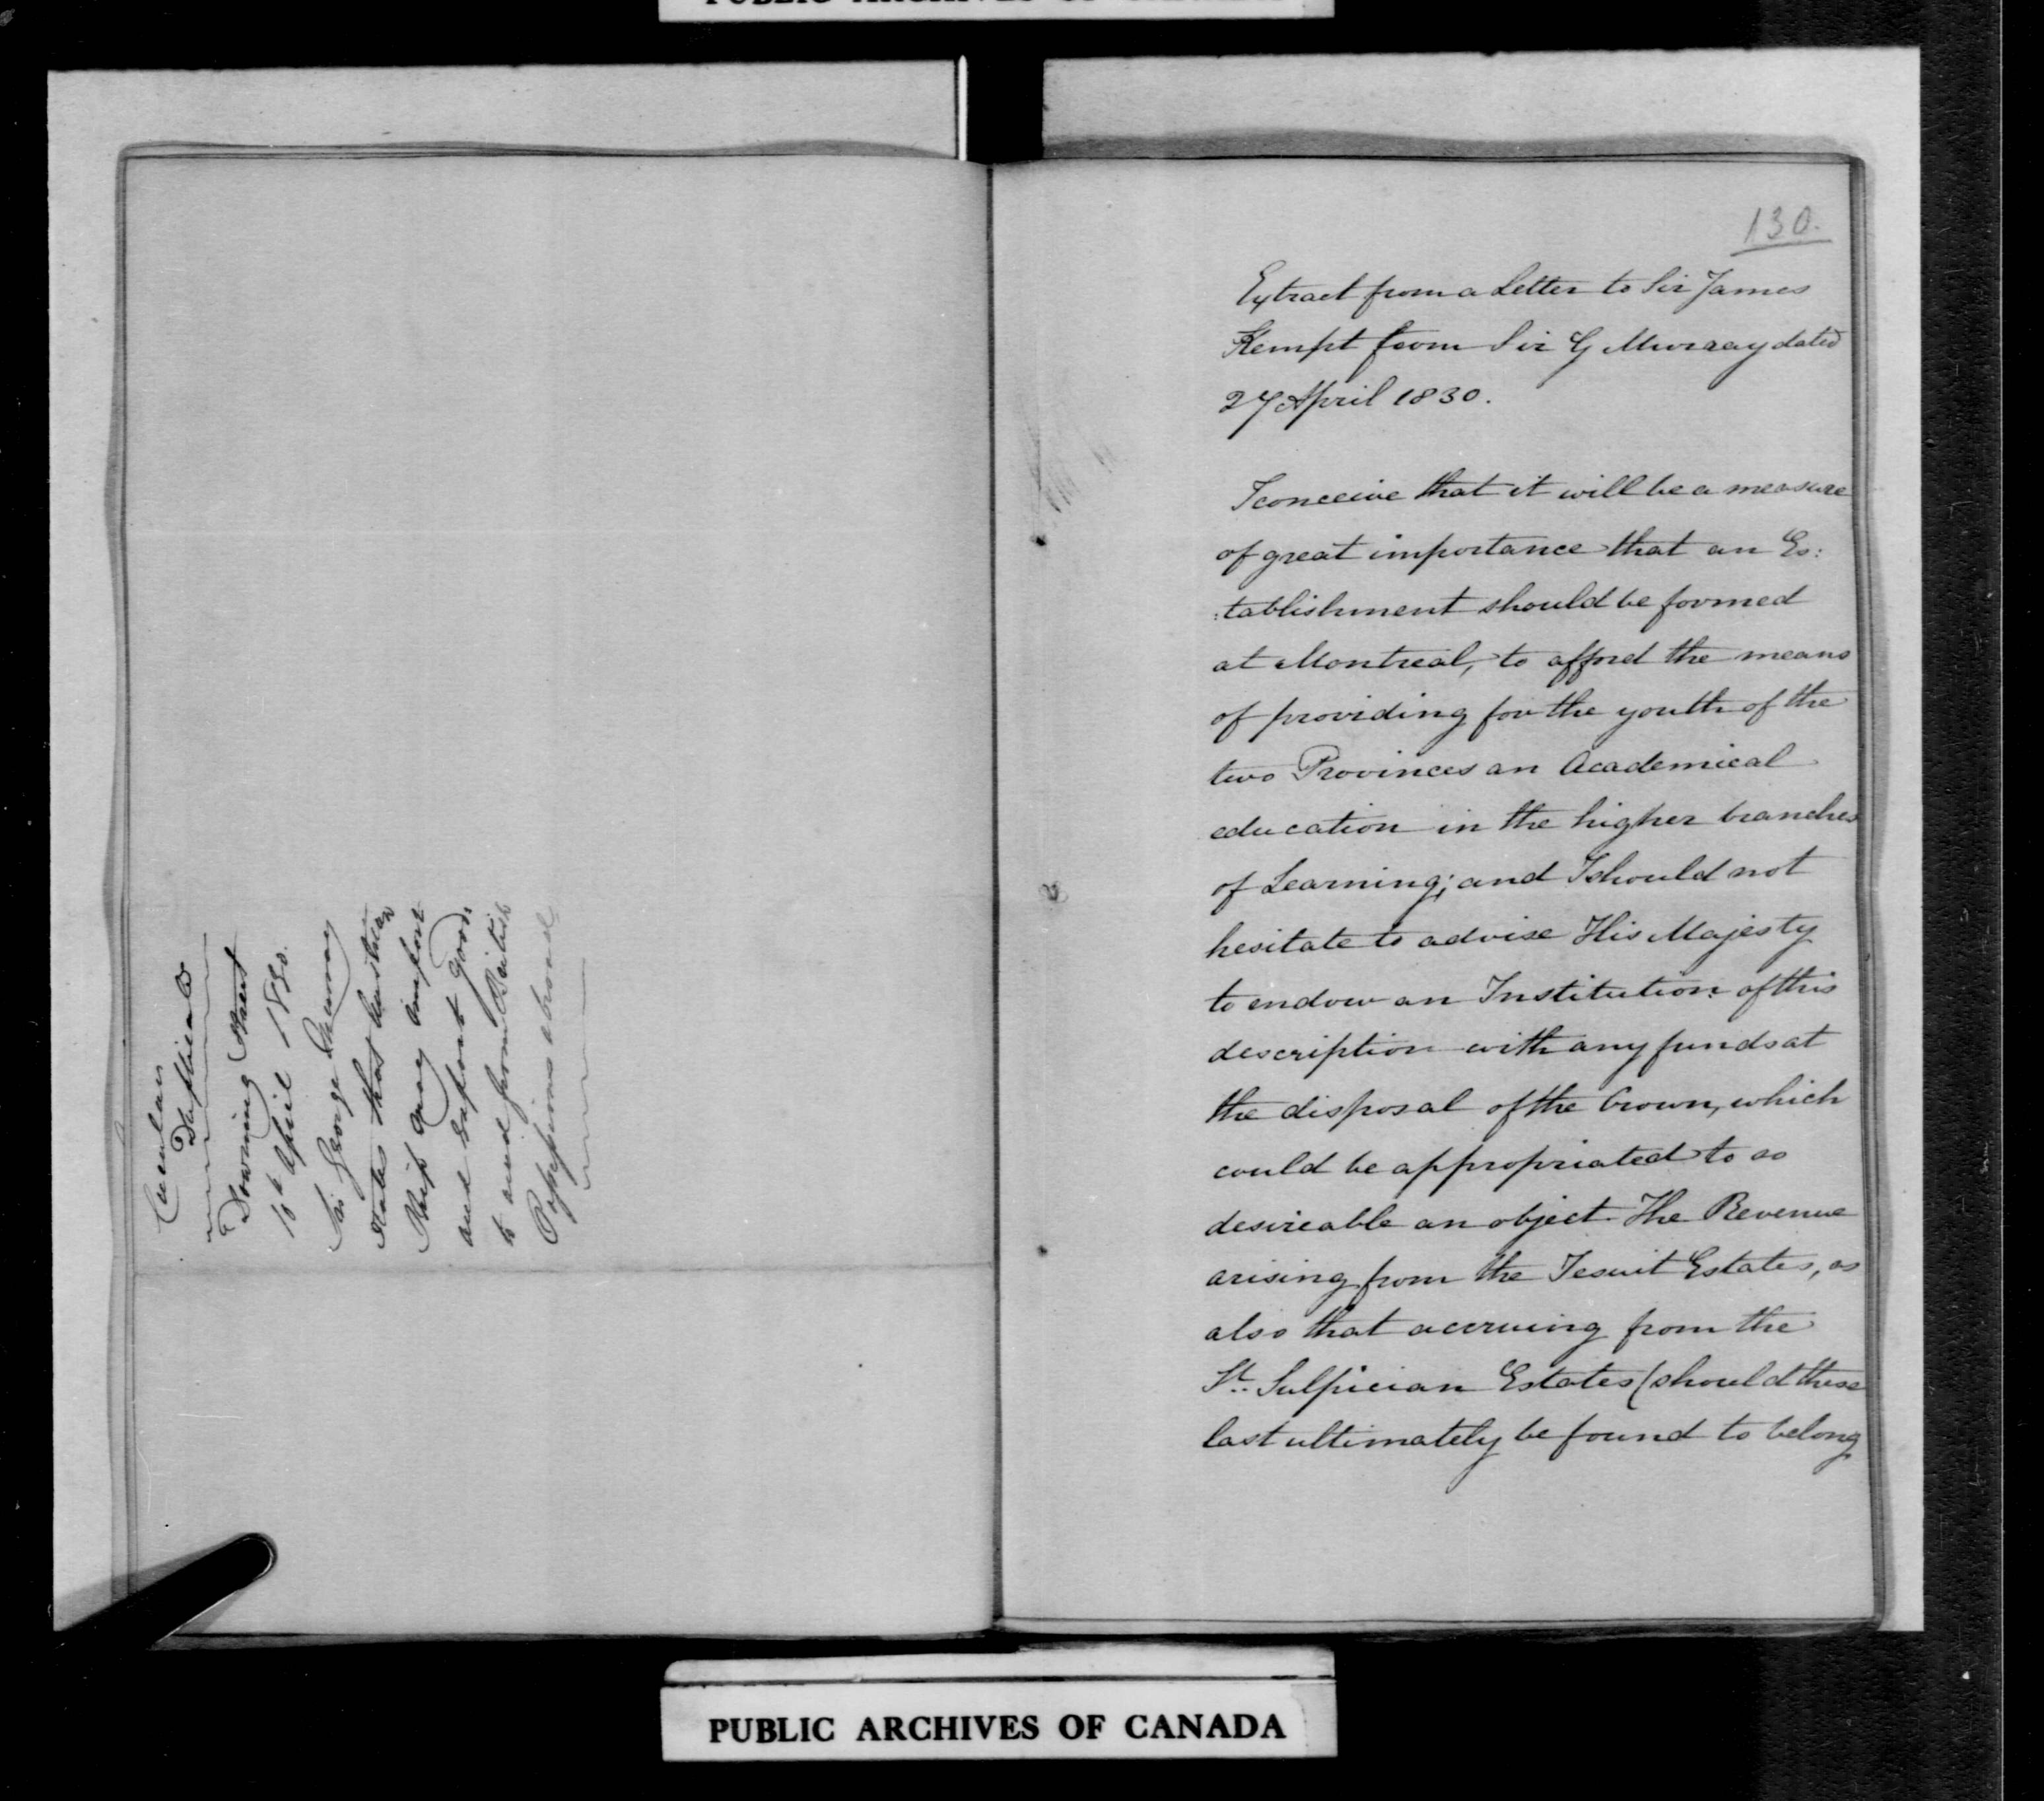 PUBLIC ARCHIVES OF CANADA
Circular
Duplicate
Downing Street
16 April 1830.
Sir George Murray
States that Austrian
Ships may import
and export goods
to and from British
Possessions abroad
130.
Extract from a Letter to Sir James
Kempt from Sir G Murray dated
27 April 1830.
I conceive that it will be a measure
of great importance that an Es:
:tablishment should be formed
at Montreal, to afford the means
of providing for the youth of the
two Provinces an Academical
education in the higher branches
of Learning; and I should not
hesitate to advise His Majesty
to endow an Institution of this
description with any funds at
the disposal of the Crown, which
could be appropriated to so
desireable an object. The Revenue
arising from the Jesuit Estates, as
also that accruing from the
St. Sulpician Estates (should these
last ultimately be found to belong
PUBLIC ARCHIVES OF CANADA